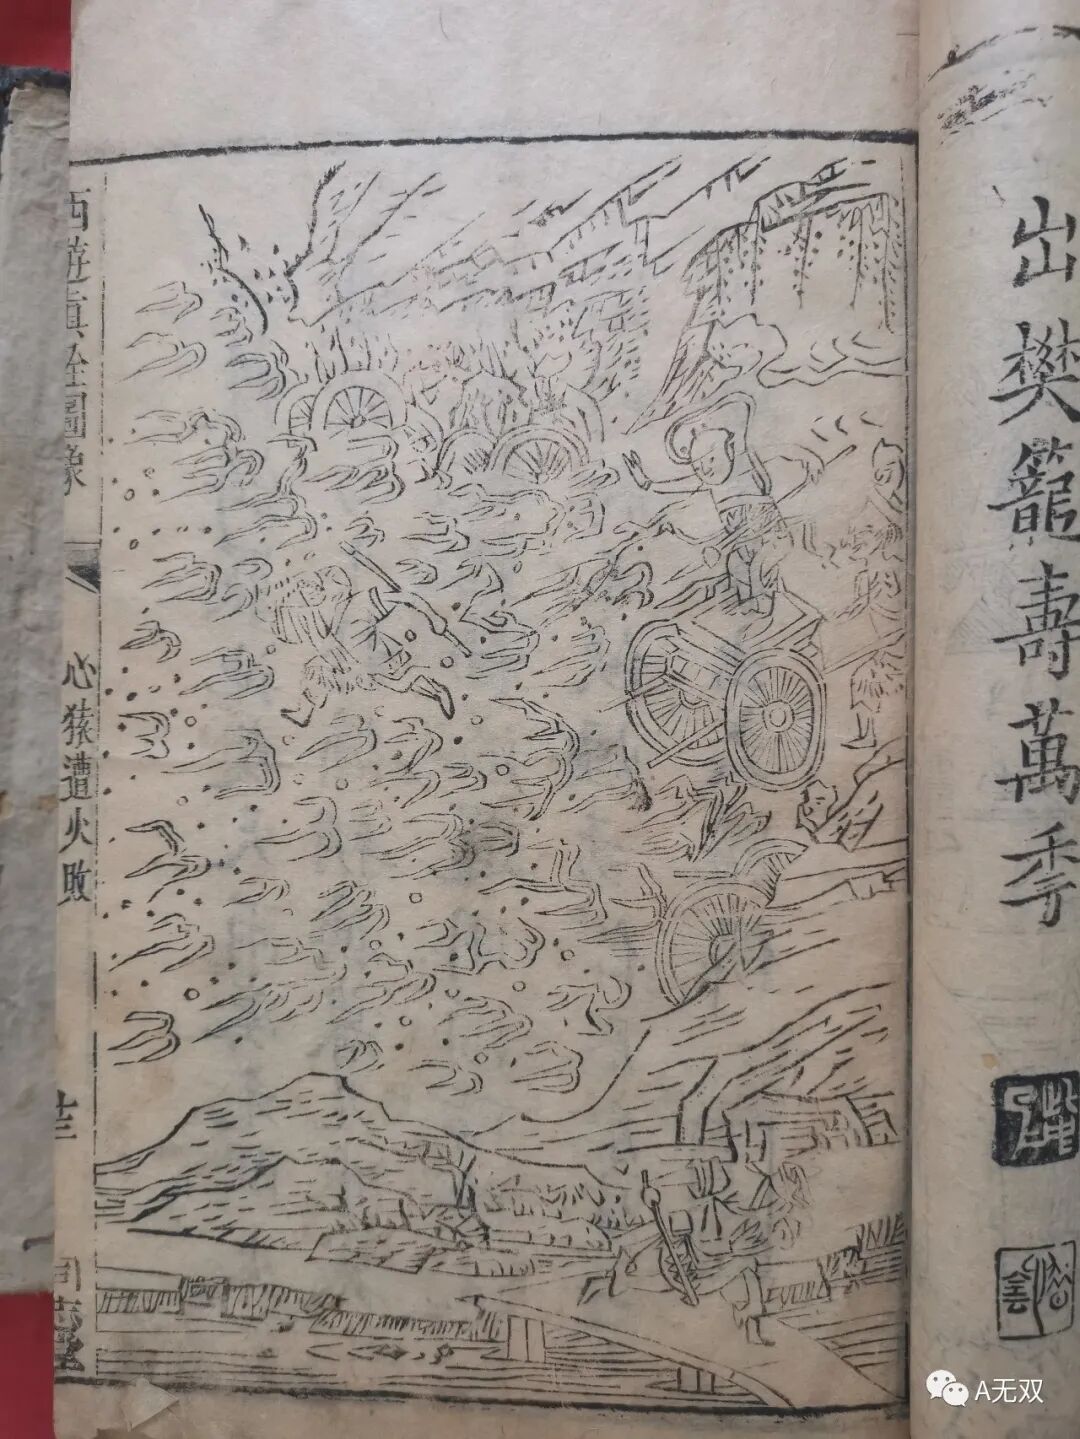 出樊籠壽萬季
西遊真詮圖像
心猿遭火敗
十三
同志堂
A无双